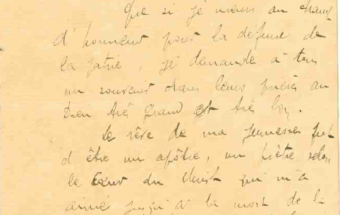 Que si je meurs au champ
d'honneur pour la défense de
la patrie, je demande à tous
un souvenir dans leurs prières au
Dieu très grand et très bon.
Le rêve de ma jeunesse fut
d'être un apôtre, un prêtre selon
le Cœur du Christ qui m'a
aimé jusqu'à la mort de la